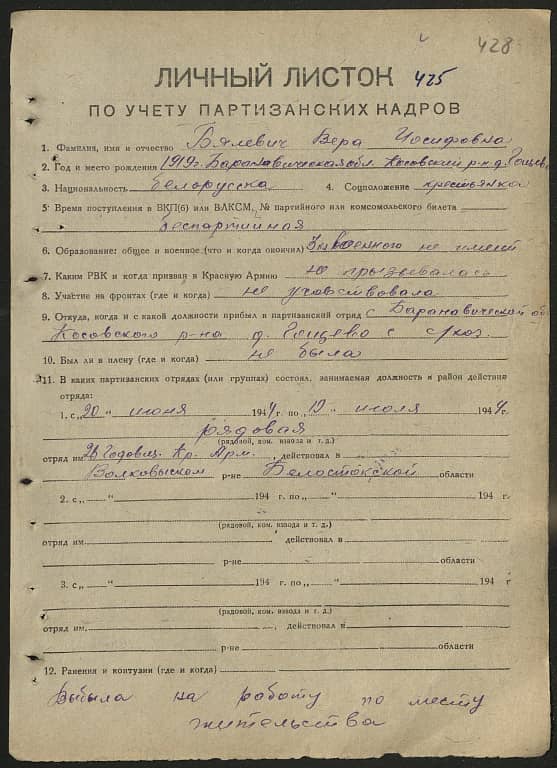 428
ЛИЧНЫЙ ЛИСТОК 425
ПО УЧЕТУ ПАРТИЗАНСКИХ КАДРОВ
1. Фамилия, имя и отчество Бялевич Вера Иосифовна
2. Год и место рождения 1919 г. Барановическая обл. Косовский р-н д. Гощево
3. Национальность белоруска 4. Соцположение крестьянка
5. Время поступления в ВКП(б) или ВЛКСМ, № партийного или комсомольского билета
беспартийная
6. Образование: общее и военное (что и когда окончил) военного не имеет
7. Каким РВК и когда призван в Красную Армию не призывалась
8. Участие на фронтах (где и когда) не участвовала
9. Откуда, когда и с какой должности прибыл в партизанский отряд с Барановической об.
Косовского р-на д. Гощево с с/хоз.
10. Был ли в плену (где и когда) не была
11. В каких партизанских отрядах (или группах) состоял, занимаемая должность и район действия
отряда:
1. с „20“ июня 1944 г. по „10“ июля 1944 г.
рядовая
(рядовой, ком. взвода и т. д.)
отряд им. 26 Годовщ. Кр. Арм., действовал в
Волковыском р-не Белостокской области
2. с „ “ 194 г. по „ “ 194 г.
(рядовой, ком. взвода и т. д.)
отряд им. действовал в
р-не области
3. с „ “ 194 г. по „ “ 194 г
(рядовой, ком. взвода и т. д.)
отряд им. , действовал в
р-не области
12. Ранения и контузии (где и когда)
Выбыла на работу по месту
жительства